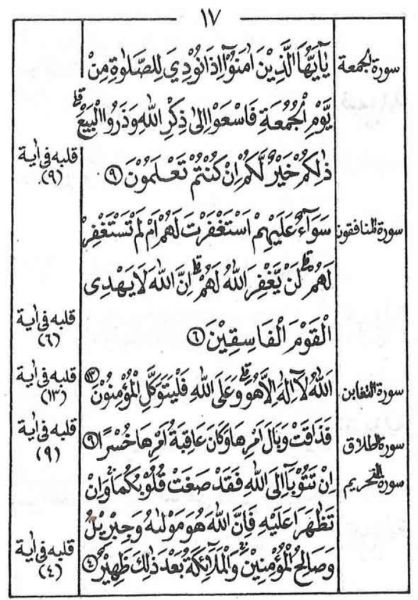 ١٧
سورة الجمعة
يٰۤاَيُّهَا الَّذِيْنَ اٰمَنُوْۤا اِذَا نُوْدِيَ لِلصَّلٰوةِ مِنْ
يَّوْمِ الْجُمُعَةِ فَاسْعَوْا اِلٰى ذِكْرِ اللّٰهِ وَذَرُوا الْبَيْعَ ؕ
ذٰلِكُمْ خَيْرٌ لَّكُمْ اِنْ كُنْتُمْ تَعْلَمُوْنَ ٩
قلبه فى اية
(٩)
سورة المنافقون
سَوَآءٌ عَلَيْهِمْ اَسْتَغْفَرْتَ لَهُمْ اَمْ لَمْ تَسْتَغْفِرْ
لَهُمْ ؕ لَنْ يَّغْفِرَ اللّٰهُ لَهُمْ ؕ اِنَّ اللّٰهَ لَا يَهْدِى
الْقَوْمَ الْفَاسِقِيْنَ ٦
قلبه فى اية
(٦)
سورة التغابن
اَللّٰهُ لَاۤ اِلٰهَ اِلَّا هُوَ ؕ وَعَلَى اللّٰهِ فَلْيَتَوَكَّلِ الْمُؤْمِنُوْنَ ١٣
قلبه فى اية
(١٣)
سورة الطلاق
فَذَاقَتْ وَبَالَ اَمْرِهَا وَكَانَ عَاقِبَةُ اَمْرِهَا خُسْرًا ٩
قلبه فى اية
(٩)
سورة التحريم
اِنْ تَتُوْبَاۤ اِلَى اللّٰهِ فَقَدْ صَغَتْ قُلُوْبُكُمَا ۚ وَاِنْ
تَظٰهَرَا عَلَيْهِ فَاِنَّ اللّٰهَ هُوَ مَوْلٰىهُ وَجِبْرِيْلُ
وَصَالِحُ الْمُؤْمِنِيْنَ ۚ وَالْمَلٰٓئِكَةُ بَعْدَ ذٰلِكَ ظَهِيْرٌ ٤
قلبه فى اية
(٤)